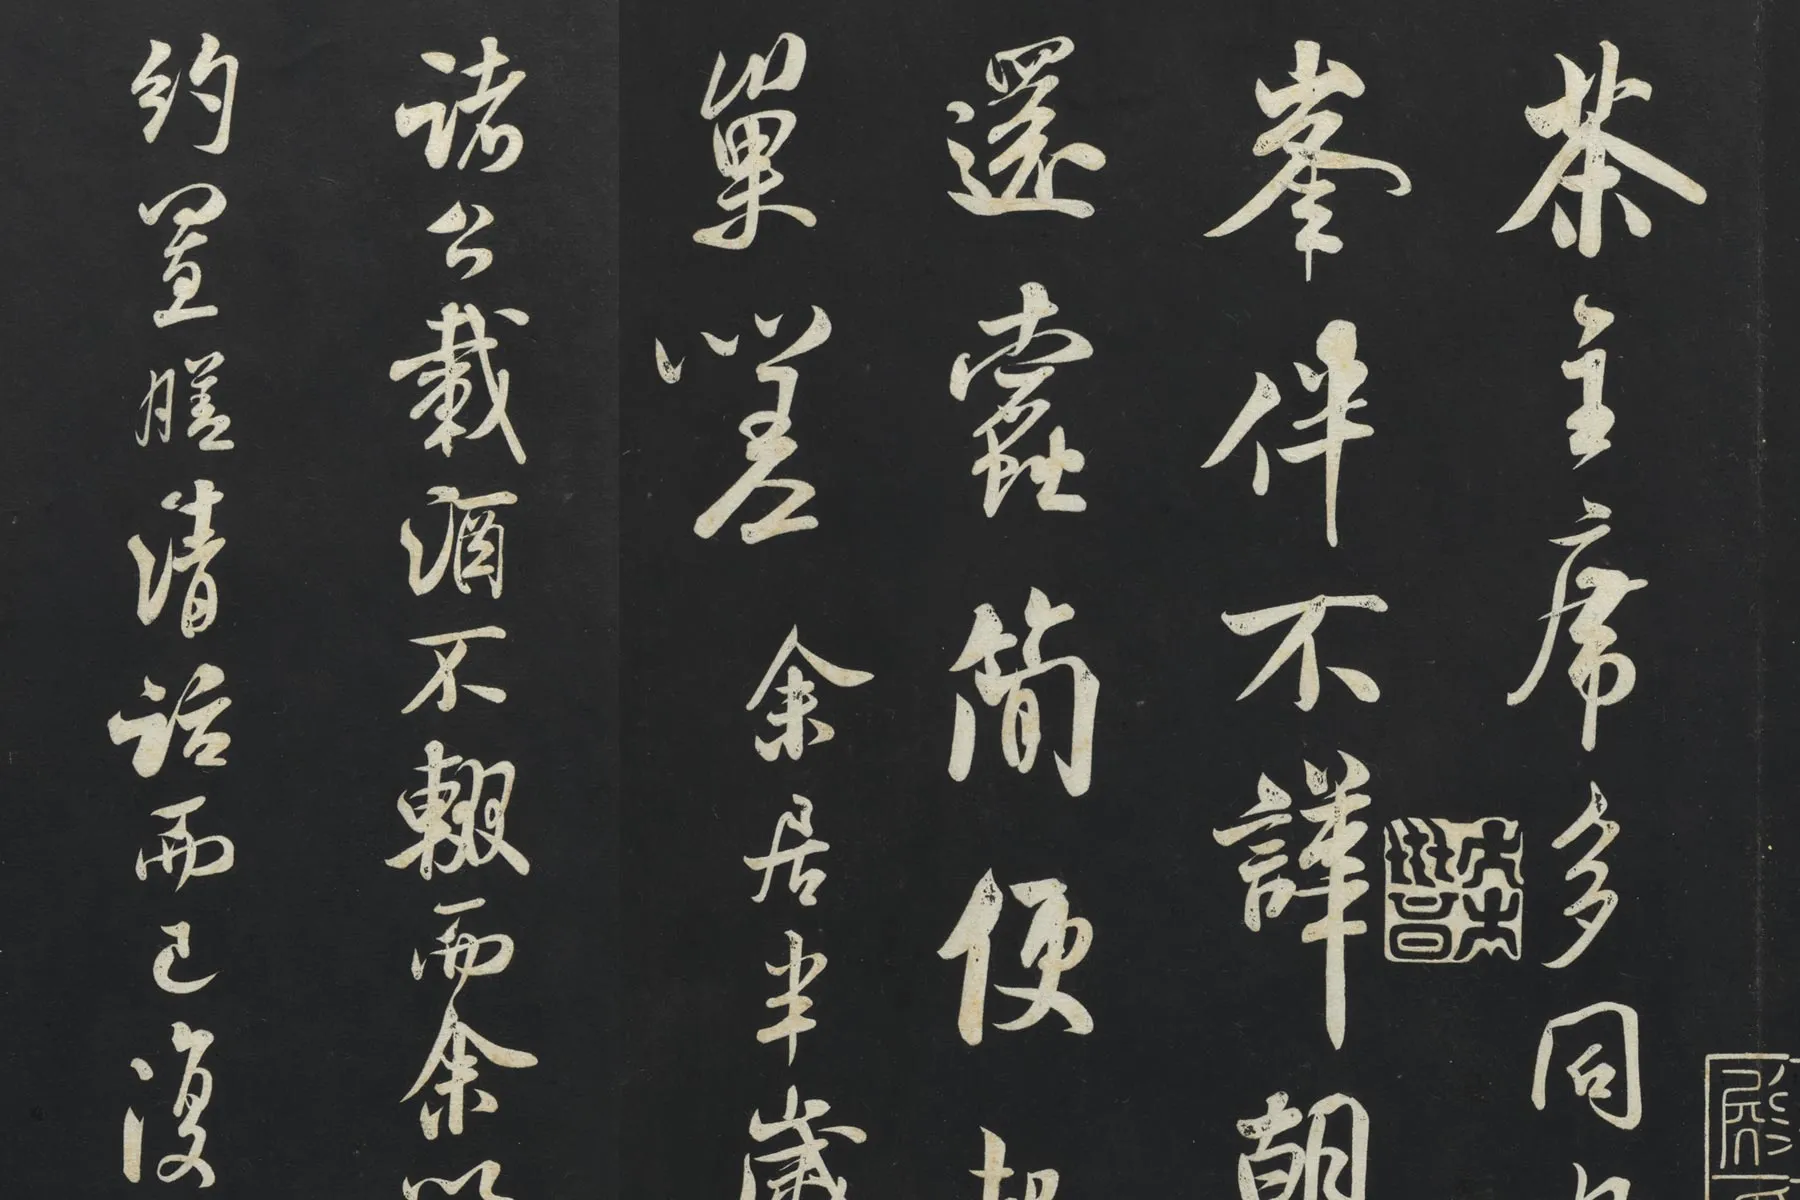 茶主席多同
峯伴不譁朝
還蠹簡便起
巢嗟余居半歲
諸公載酒不輟而余以
約置膳清話而已復